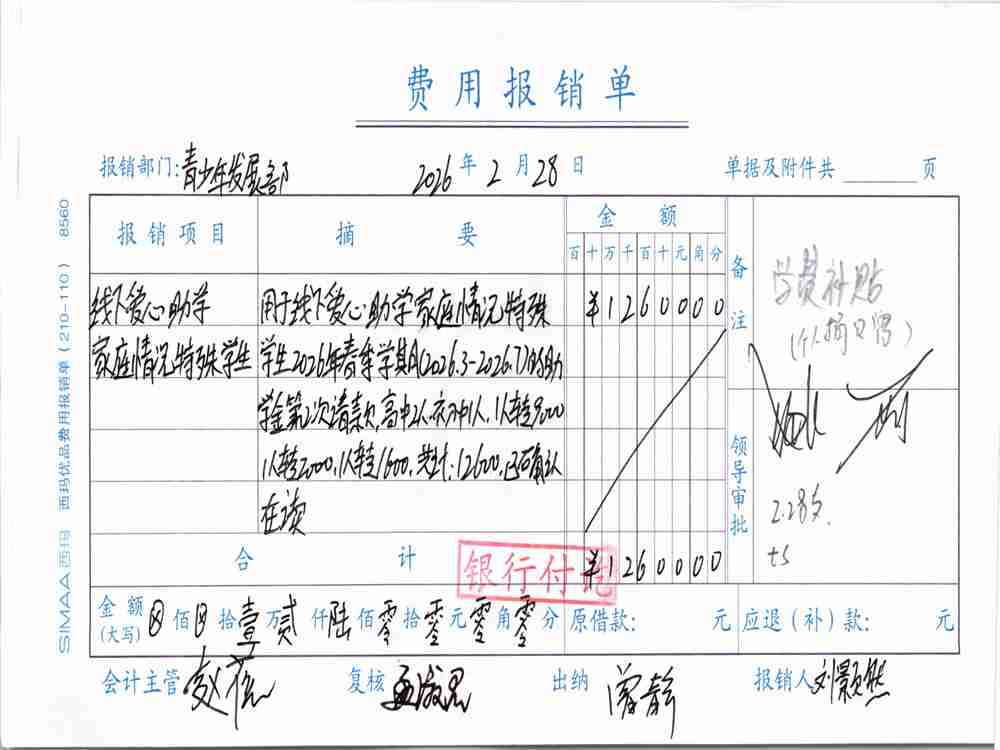 费用报销单
报销部门:青少年发展部 2026年2月28日 单据及附件共 页
报销项目 摘要 金额 备注
百十万千百十元角分
线下爱心助学 用于线下爱心助学家庭情况特殊 ¥1260000
家庭情况特殊学生 学生2026年春季学期(2026.3-2026.7)的助
学金第2次请款,高中2人,初中1人,1人转9000
1人转2000,1人转1600,共计:12600,已确认
在读
学费补贴
领导审批
2.28支
合计 ¥1260000
银行付讫
金额(大写) 佰 拾壹万贰仟陆佰零拾零元零角零分 原借款: 元 应退(补)款: 元
会计主管 赵 复核 出纳 曾静 报销人 刘颢然
SIMAA西玛 西玛优品费用报销单(210-110) 8560